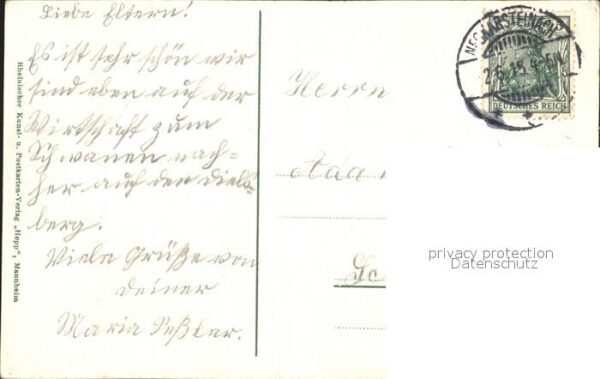 Liebe Eltern!
Es ist sehr schön wir
sind eben auf der
Wirtschaft zum
Schwanen nach-
her auf den Dils-
berg.
Viele Grüße von
deiner
Maria
Rheinischer Kunst- u. Postkarten-Verlag „Hepp“, Mannheim
Herrn
NECKARSTEINACH
DEUTSCHES REICH
privacy protection
Datenschutz